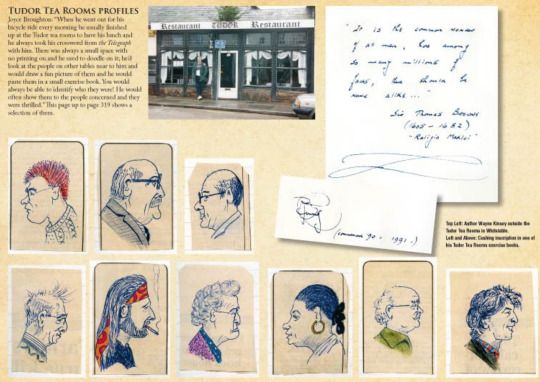 TUDOR TEA ROOMS PROFILES
Joyce Broughton: "When he went out for his
bicycle ride every morning he usually finished
up at the Tudor tea rooms to have his lunch and
he always took his crossword from the Telegraph
with him. There was always a small space with
no printing on and he used to doodle on it; he'd
look at the people on other tables near to him and
would draw a fun picture of them and he would
paste them in a small exercise book. You would
always be able to identify who they were! He would
often show them to the people concerned and they
were thrilled." This page up to page 319 shows a
selection of them.
Restaurant TUDOR Restaurant
"It is the common wonder
of all men, how among
so many millions of
faces, there should be
none alike ..."
Sir Thomas Browne
(1605 - 1682)
"Religio Medici"
(Summer '90 - 1991.)
Top Left: Author Wayne Kinsey outside the
Tudor Tea Rooms in Whitstable.
Left and Above: Cushing inscription in one of
his Tudor Tea Rooms exercise books.